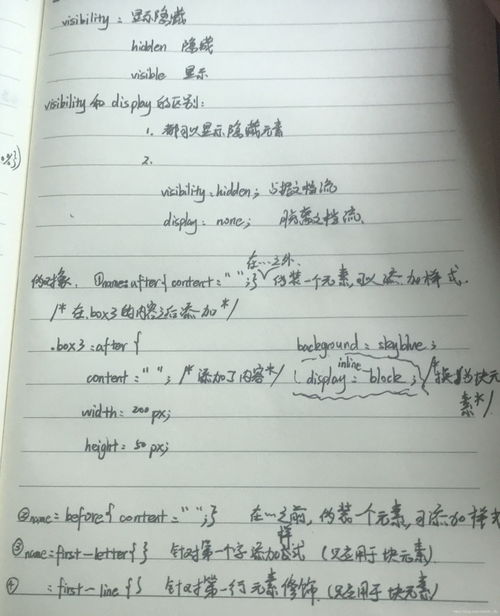 visibility: 显示隐藏
hidden 隐藏
visible 显示
visibility 和 display 的区别:
1. 都可以显示隐藏元素
2.
visibility: hidden; 占据文档流
display: none; 脱离文档流
在…之外.
伪对象. ①name:after{content:" ";} 伪装一个元素,可以添加样式.
/* 在.box3的内容之后添加 */
.box3:after{ background: skyblue;
inline
content: " "; /* 添加了内容 */ (display: block; /* 转换为块元素 */
width: 200px;
height: 50px;
②name:before{content:" ";} 在…之前,伪装一个元素,可添加样式
样
③name:first-letter{ } 针对第一个字添加式 (只适用于块元素)
④ :first-line{ } 针对第一行元素修饰.(只适用于块元素)